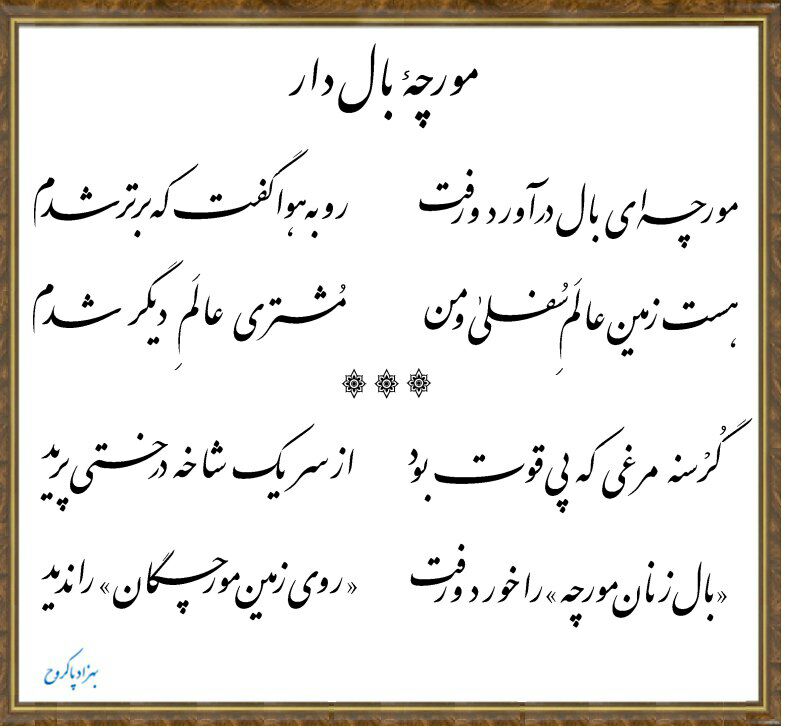 مورچهٔ بال دار
مورچه‌ای بال درآورد و رفت رو به هوا گفت که برتر شدم
هست زمین عالَمِ سُفلیٰ و من مُشتری عالَمِ دیگر شدم
گُرْسنه مرغی که پی قوت بود از سر یک شاخه درختی پرید
«بال زنان مورچه» را خورد و رفت «روی زمین مورچگان» را ندید
بهزاد پاکروح